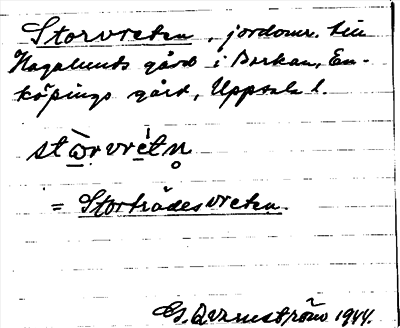 Storvreten, jordomr. till
Hagalunds gård i Boskan, En-
köpings gård, Uppsala l.
stὼrvrètn̥
= Storträdesvreten.
G. Qvarnström 1944.